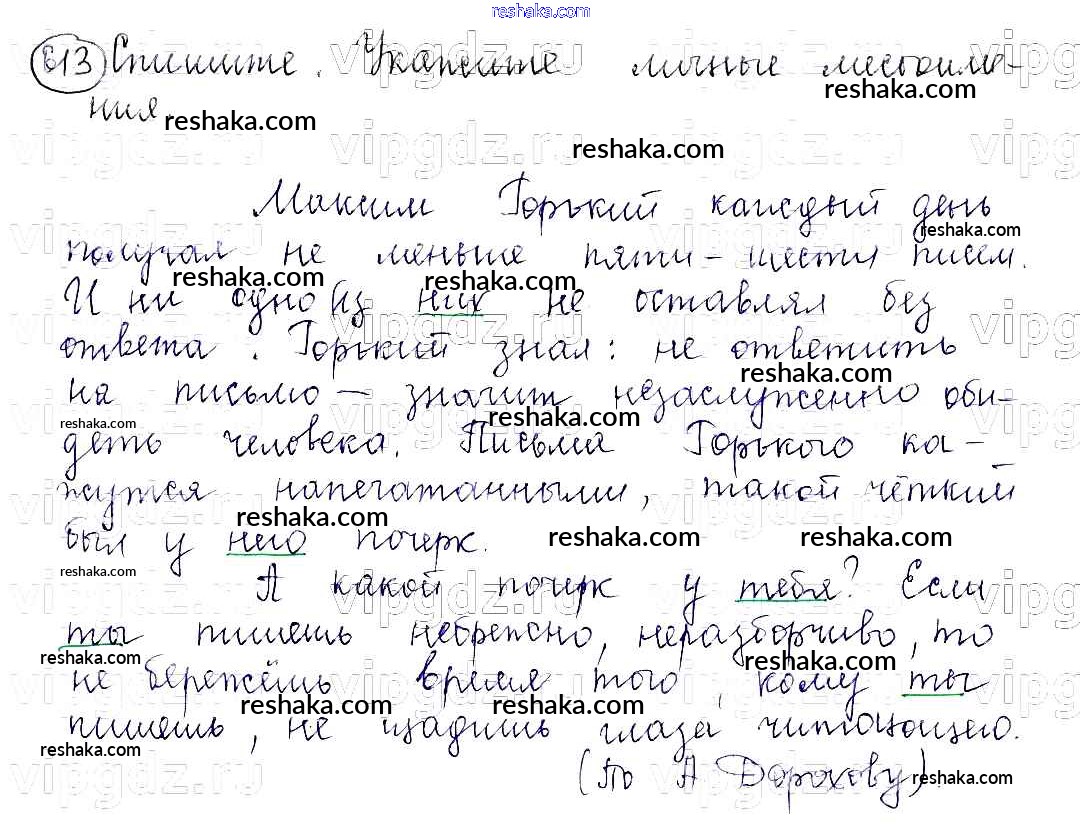 reshaka.com
613 Спишите. Укажите личные местоиме-
ния.
Максим Горький каждый день
получал не меньше пяти-шести писем.
И ни одно из них не оставлял без
ответа. Горький знал: не ответить
на письмо — значит незаслуженно оби-
деть человека. Письма Горького ка-
жутся напечатанными, такой чёткий
был у него почерк.
А какой почерк у тебя? Если
ты пишешь небрежно, неразборчиво, то
не бережёшь время того, кому ты
пишешь, не щадишь глаза читающего.
(По А Дорохову)